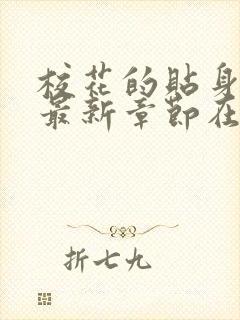 校花的貼身
最新章節在
折七九